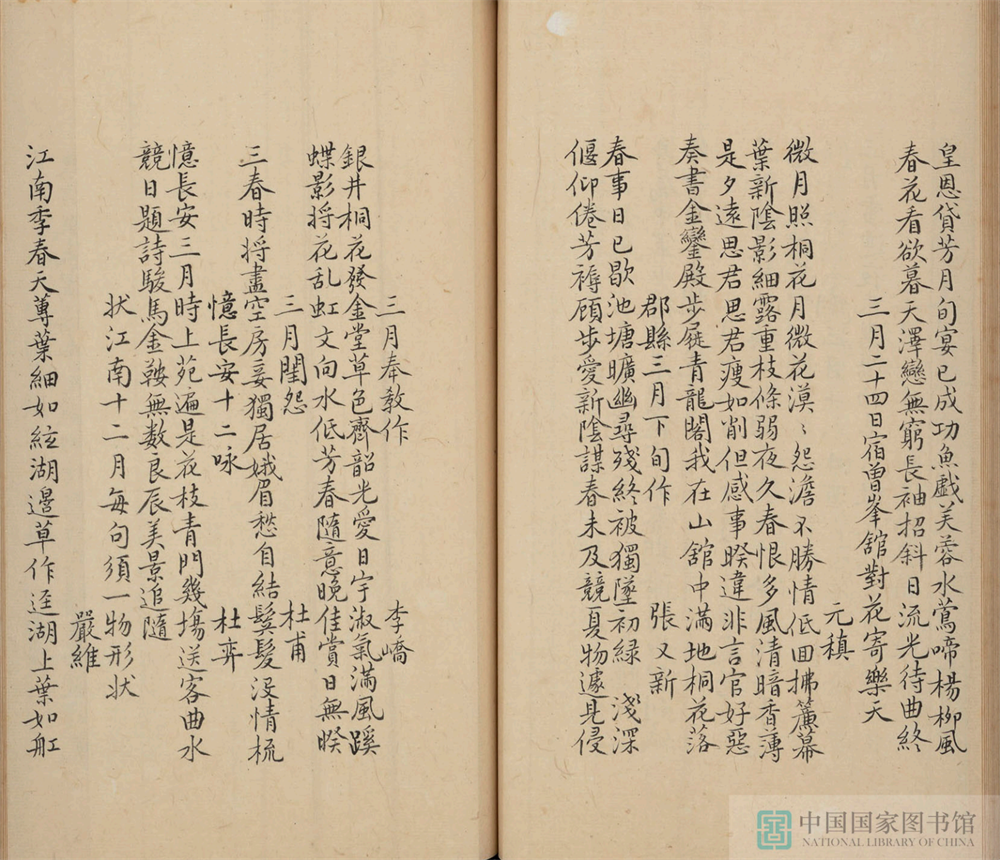 皇恩貸芳月旬宴已成功魚戲芙蓉水鶯啼楊柳風
春花看欲暮天澤戀無窮長袖招斜日流光待曲終
三月二十四日宿曾峯館對花寄樂天
元稹
微月照桐花月微花漠〻怨澹不勝情低回拂簾幕
葉新陰影細露重枝條弱夜久春恨多風清暗香薄
是夕遠思君思君瘦如削但感事暌違非言官好惡
奏書金鑾殿步屣青龍閣我在山舘中滿地桐花落
郡縣三月下旬作 張又新
春事日已歇池塘曠幽尋殘終被獨墜初綠 淺深
偃仰倦芳褥顧步愛新陰謀春未及競夏物遽見侵
三月奉教作 李嶠
銀井桐花發金堂草色齊韶光愛日宇淑氣滿風蹊
蝶影將花乱虹文向水低芳春隨意晚佳賞日無暌
三月閨怨 杜甫
三春時將盡空房妾獨居娥眉愁自結鬓髮没情梳
憶長安十二咏 杜弈
憶長安三月時上苑遍是花枝青門幾塲送客曲水
競日題詩駿馬金鞍無数良辰美景追隨
狀江南十二月每句須一物形狀
嚴維
江南季春天蓴葉細如絃湖邊草作逕湖上葉如舡
中国国家图书馆
NATIONAL LIBRARY OF CHINA